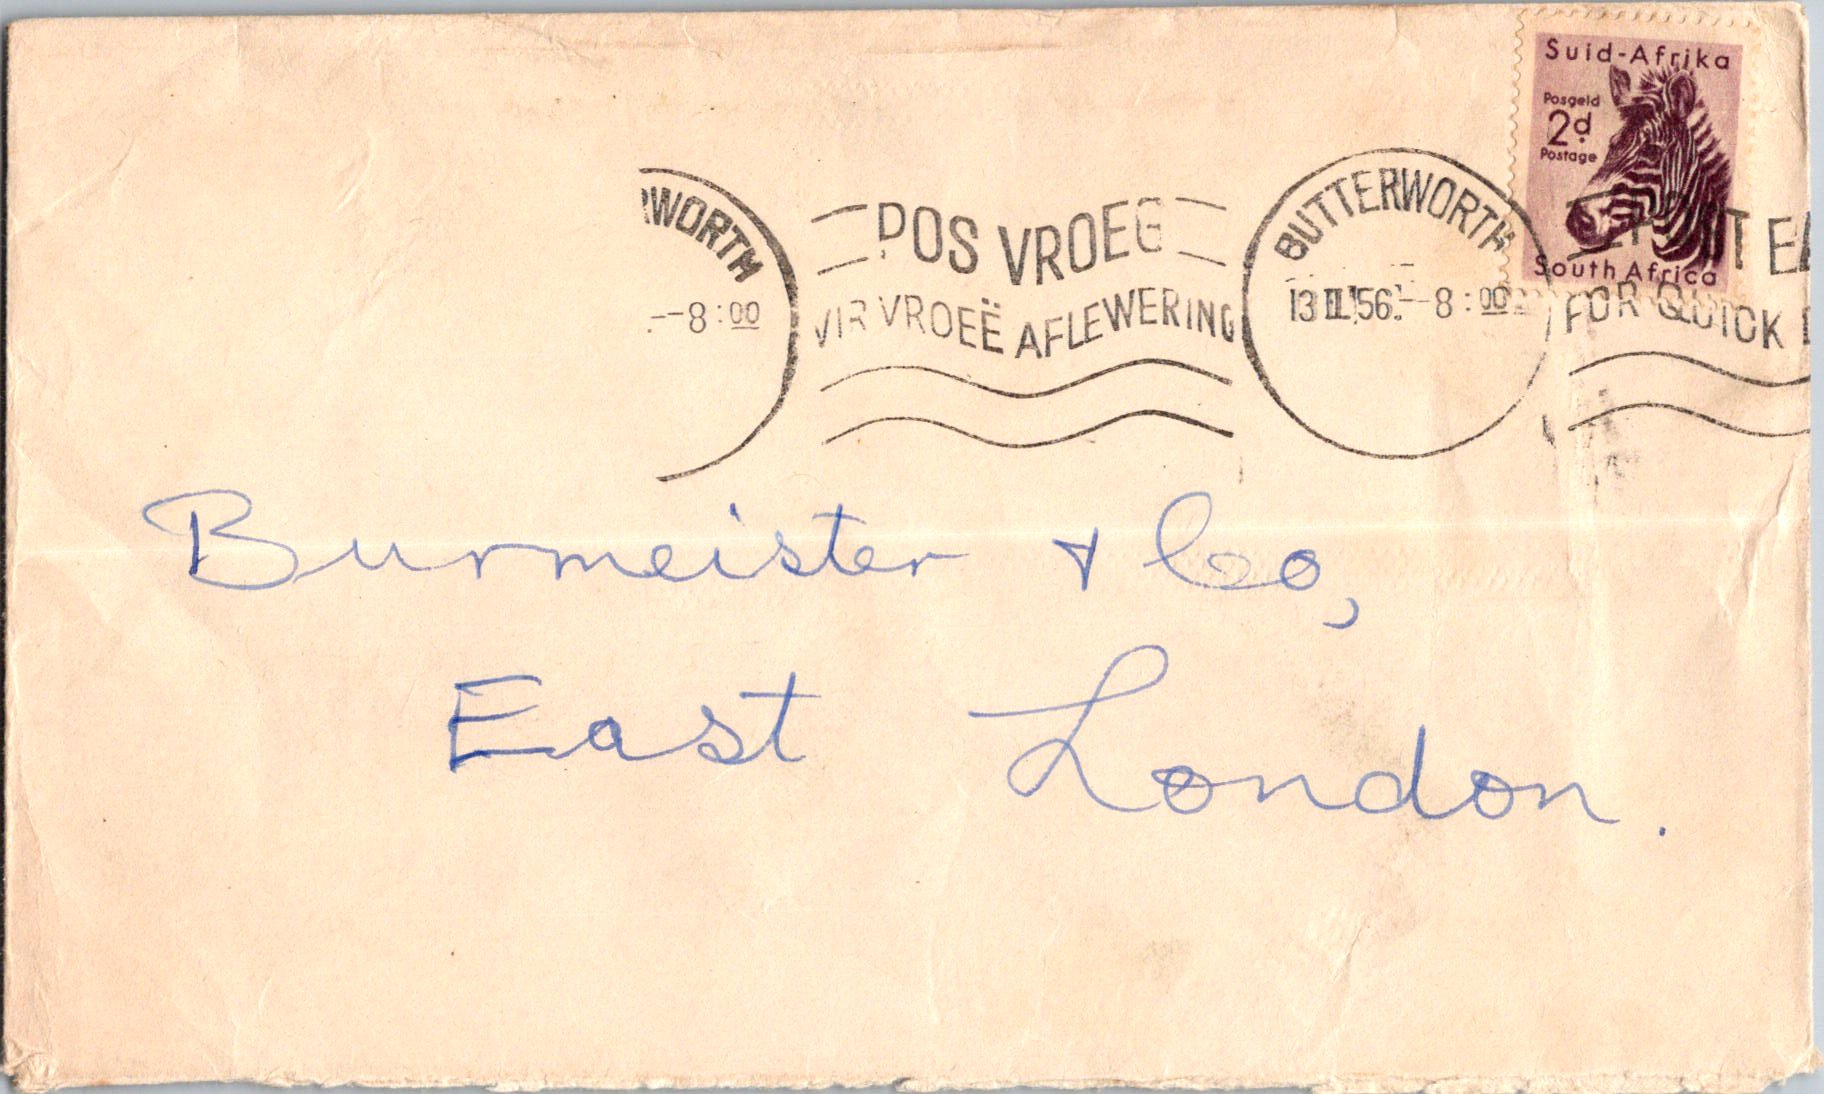 Suid-Afrika
Posgeld
2d
Postage
South Africa
WORTH
POS VROEG
VIR VROEË AFLEWERING
--8:00
BUTTERWORTH
13 II 56 -- 8:00
FOR QUICK
Burmeister + Co,
East London.